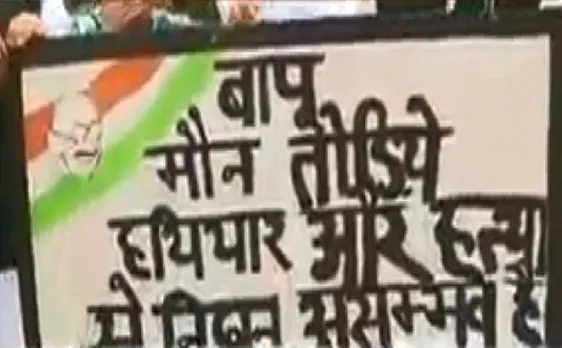 बापू
मौन तोडिये
हथियार और हत्या
से असम्भव है